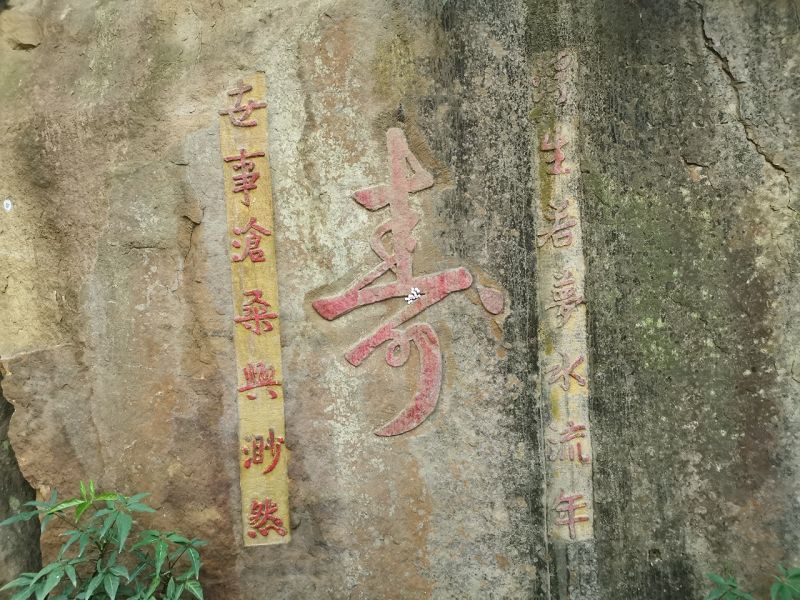 浮生若夢水流年
寿
世事滄桑興渺然